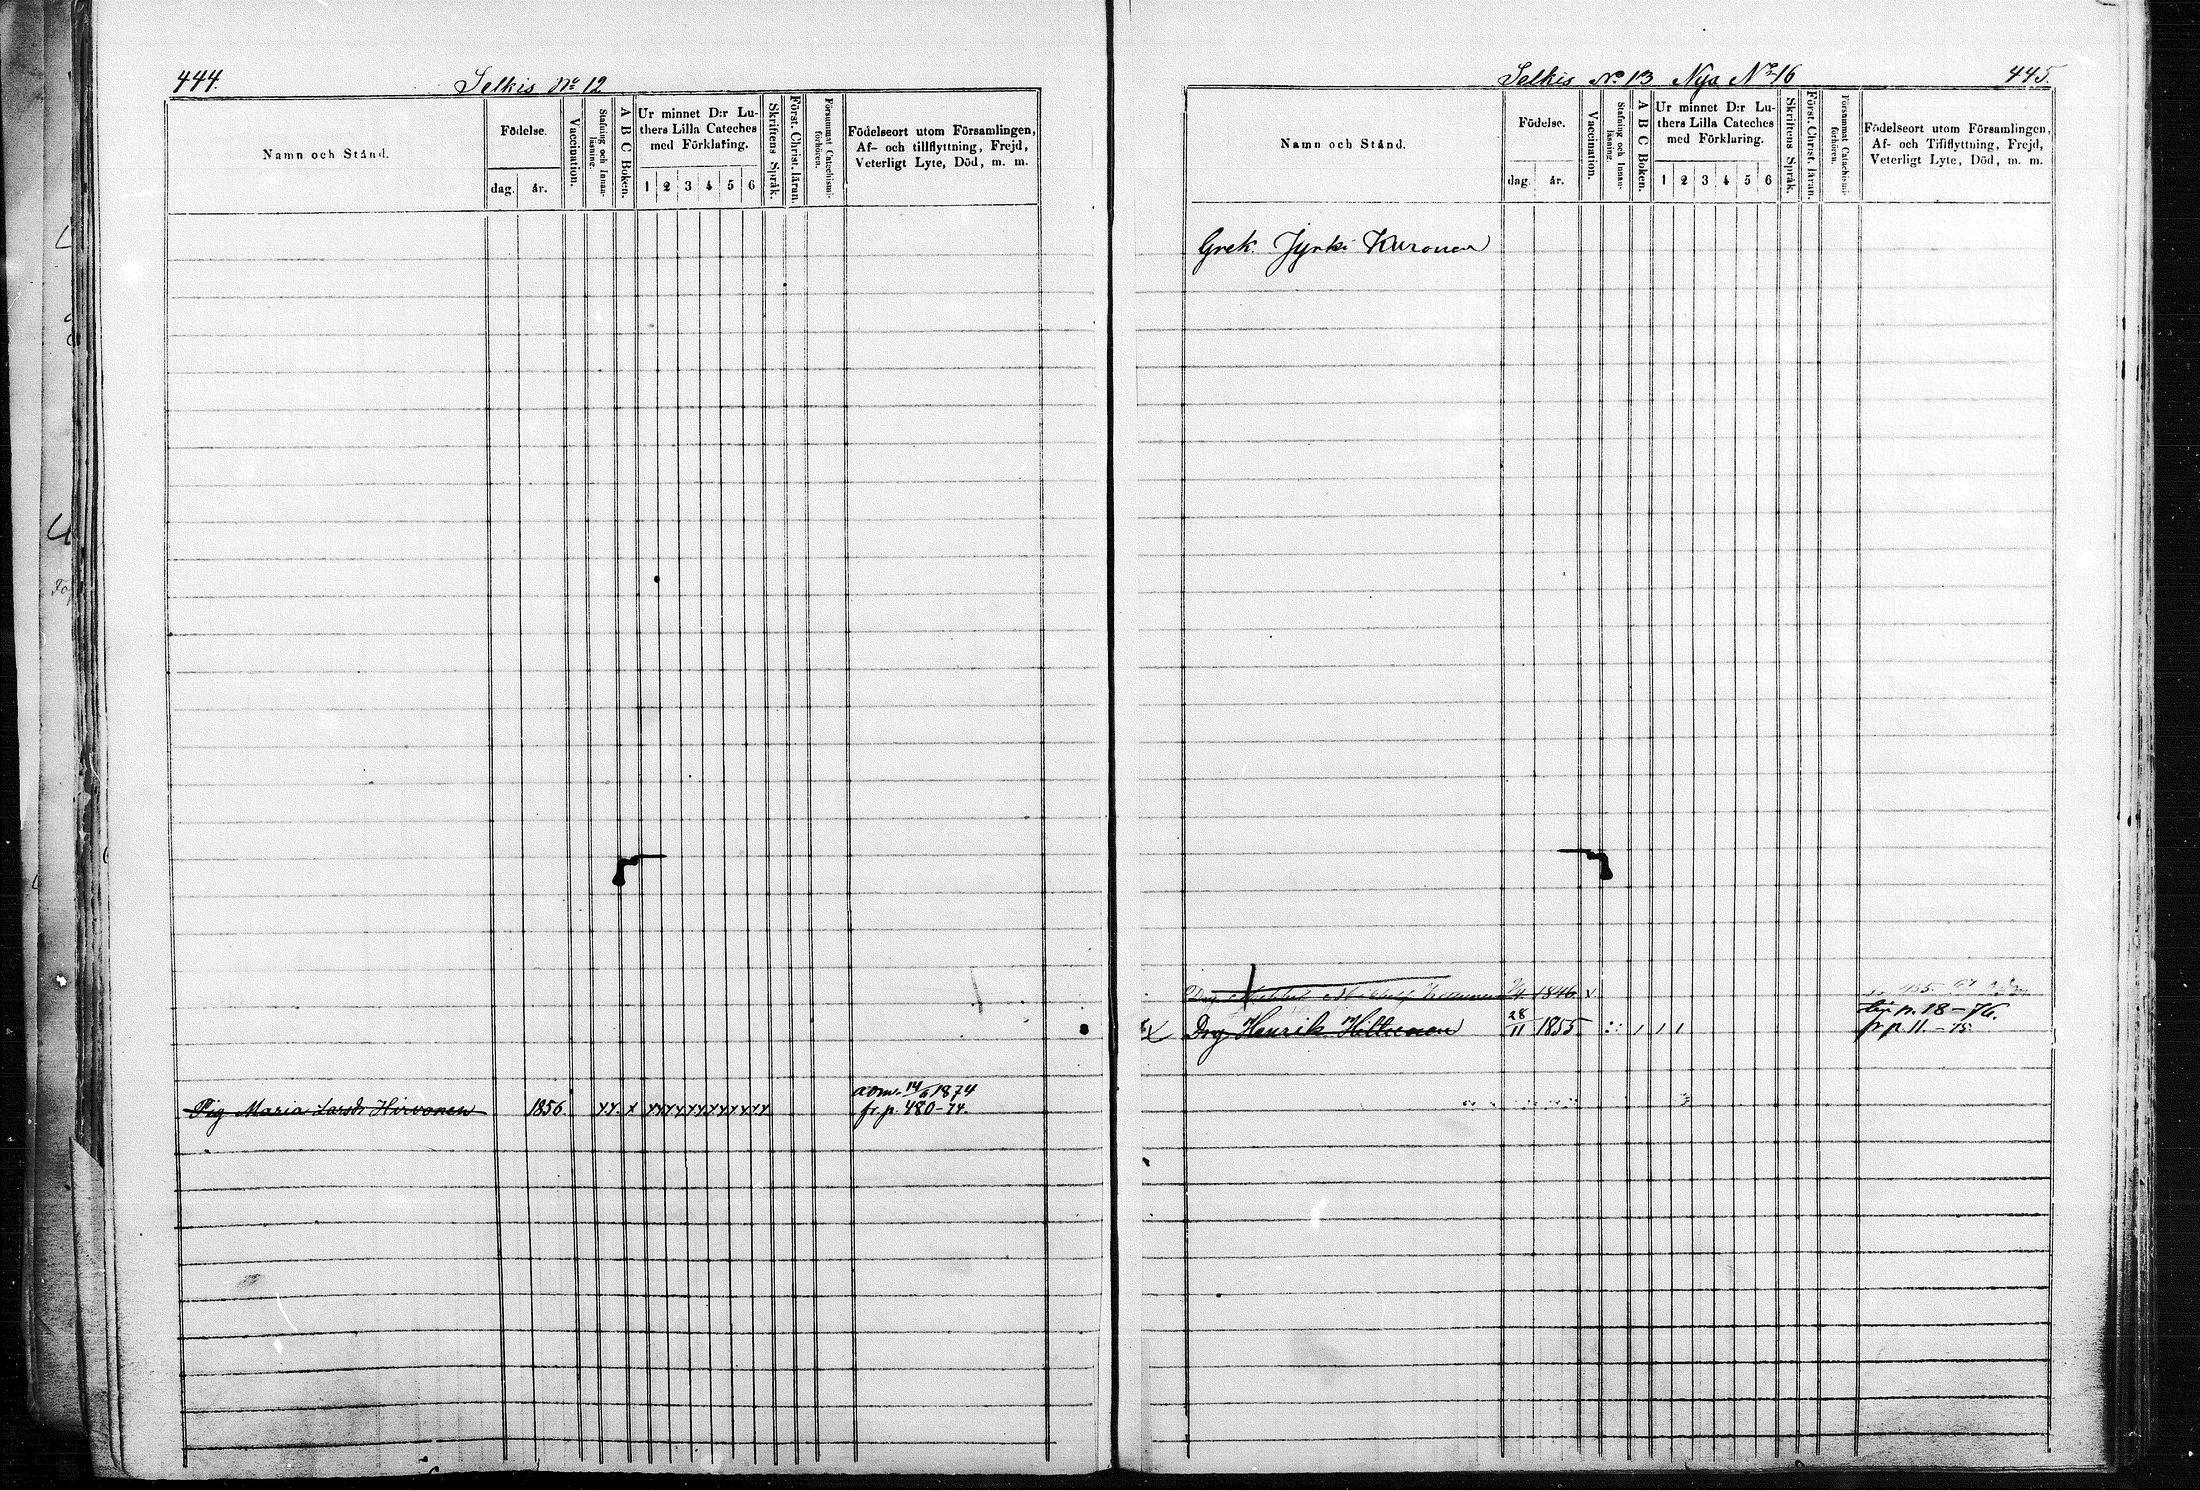 444.
Selkis No 12
Namn och Stånd.
Födelse.
dag.
år.
Vaccination.
Stafning och Innanläsning.
A B C Boken.
Ur minnet D:r Luthers Lilla Cateches med Förklaring.
1 2 3 4 5 6
Skriftens Språk.
Först. Christ. läran.
Försummat Catechismiförhören.
Födelseort utom Församlingen,
Af- och tillflyttning, Frejd,
Veterligt Lyte, Död, m. m.
adm. 14/6 1874
Pig Maria Larsdr Hirvonen 1856. fr. p. 480-74.
Selkis No 13 Nya No 16
445.
Namn och Stånd.
Födelse.
dag.
år.
Vaccination.
Stafning och Innanläsning.
A B C Boken.
Ur minnet D:r Luthers Lilla Cateches med Förklaring.
1 2 3 4 5 6
Skriftens Språk.
Först. Christ. läran.
Försummat Catechismiförhören.
Födelseort utom Församlingen,
Af- och Tillflyttning, Frejd,
Veterligt Lyte, Död, m. m.
Grek. Jyrki Kuronen
1846
p. 18-76.
x Drg Henrik Hiltunen 28/11 1855 fr p. 11.-75.